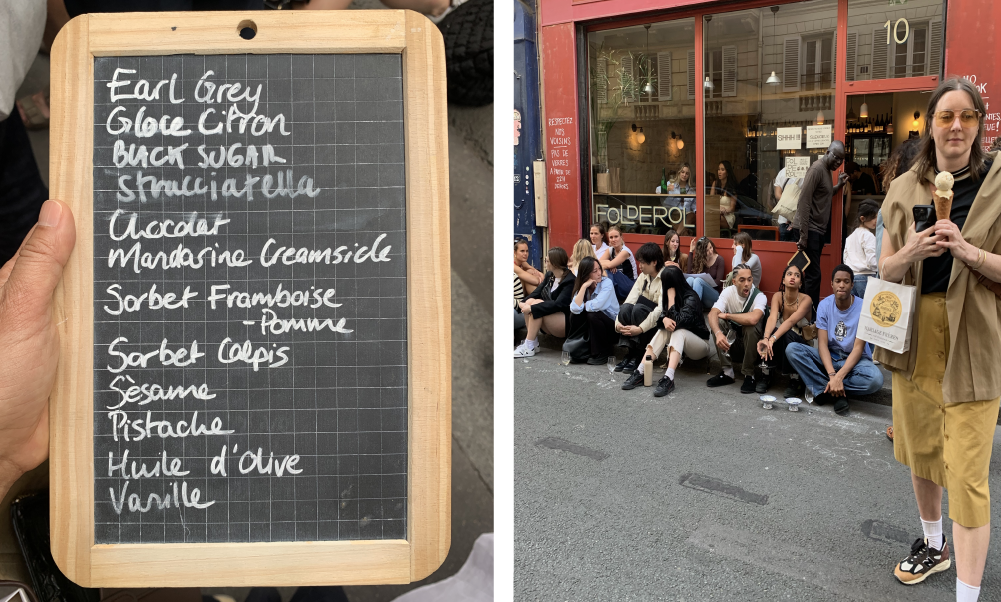 Earl Grey
Glace Citron
BLACK SUGAR
Stracciatella
Chocolat
Mandarine Creamsicle
Sorbet Framboise
-Pomme
Sorbet Calpis
Sèsame
Pistache
Huile d'Olive
Vanille
10
RESPECTEZ
NOS
VOISINS
PAS DE
VERRES
A PARTIR DE
22H
DEHORS
SHHH !!!
FOLDEROL